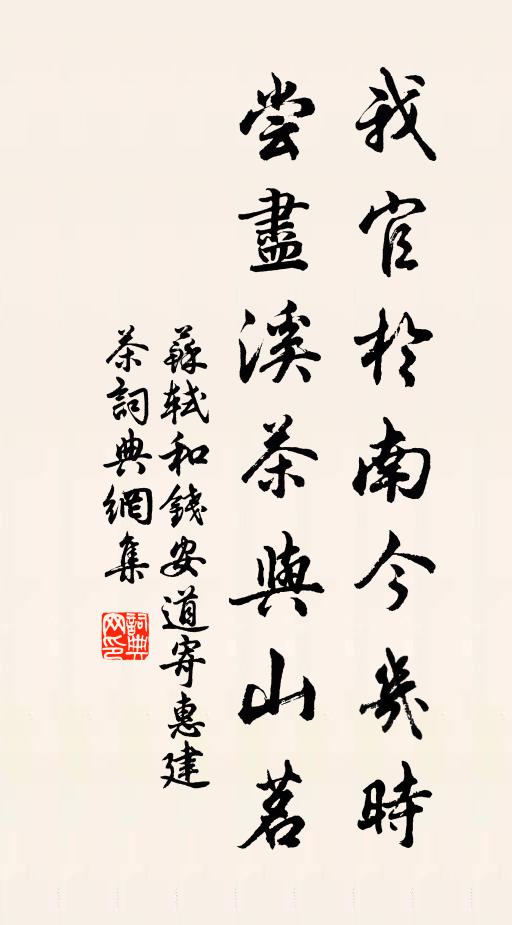 我官於南今幾時
嘗盡溪茶與山茗
蘇軾和錢安道寄惠建
茶詞典網集
詞典
网印